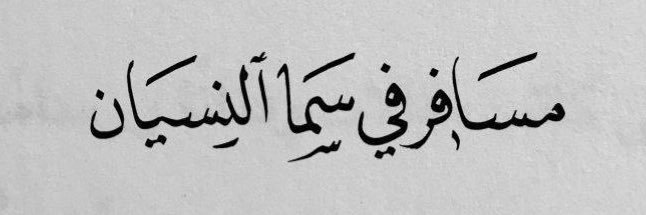 مسَافر في سَمِا ٱلنِسيَان